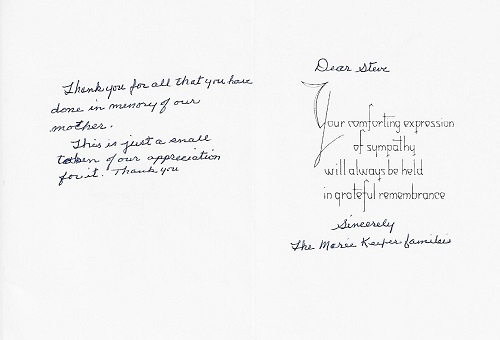 Thank you for all that you have
done in memory of our
mother.
This is just a small
token of our appreciation
for it. Thank you
Dear Steve
Your comforting expression
of sympathy
will always be held
in grateful remembrance
Sincerely
The Marie families